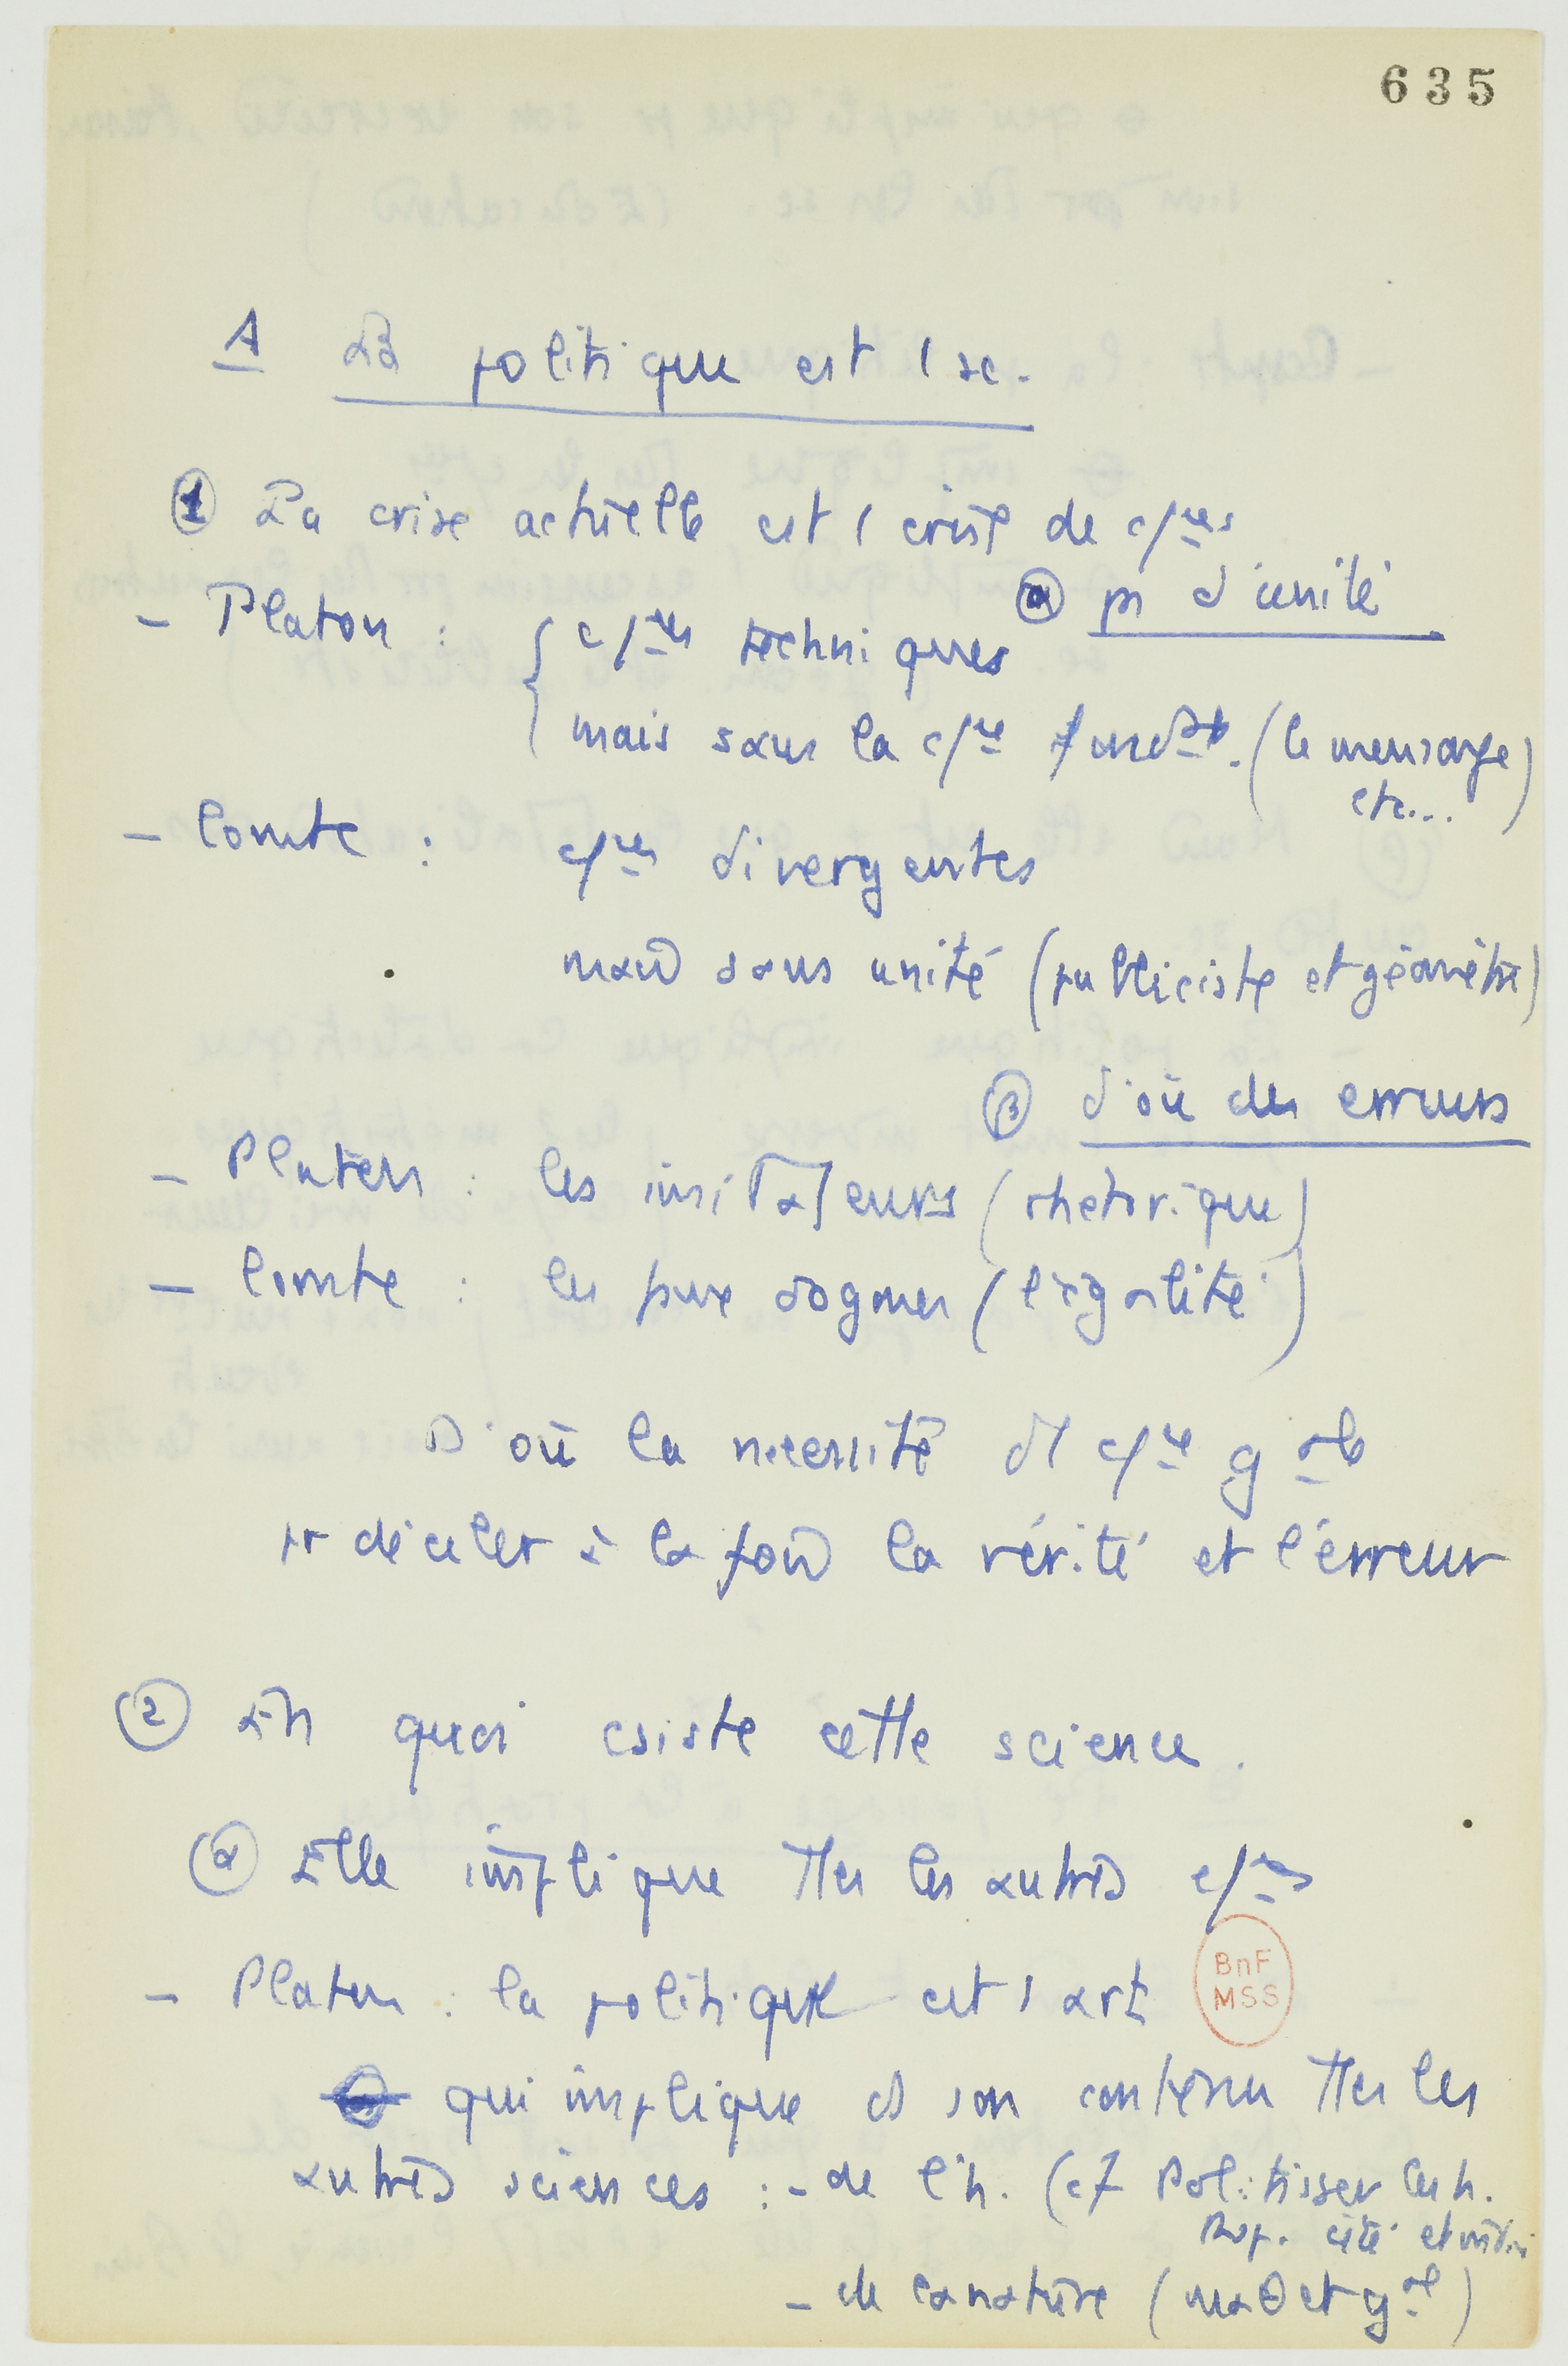 635
A La politique est 1 sc.
① La crise actuelle est 1 crise de cf^ces
α ps d'unité
- Platon : { cf^ces techniques
mais sans la cf^ce fond^ale. (le mensonge)
etc...
- Comte : cf^ces divergentes
mais sans unité (publiciste et géomètre)
β d'où des erreurs
- Platon : les imitateurs (rhétorique)
- Comte : les faux dogmes (l'égalité)
D'où la nécessité d'1 cf^ce g^ale
pr déceler à la fois la vérité et l'erreur
② En quoi csiste cette science.
α Elle implique ttes les autres cf^ces
- Platon : la politique est 1 art
BnF
MSS
qui implique ds son contenu ttes les
autres sciences : - de l'h. (cf Politiser les h.
Rep. cité et
- de la nature (maθ et g^ale)